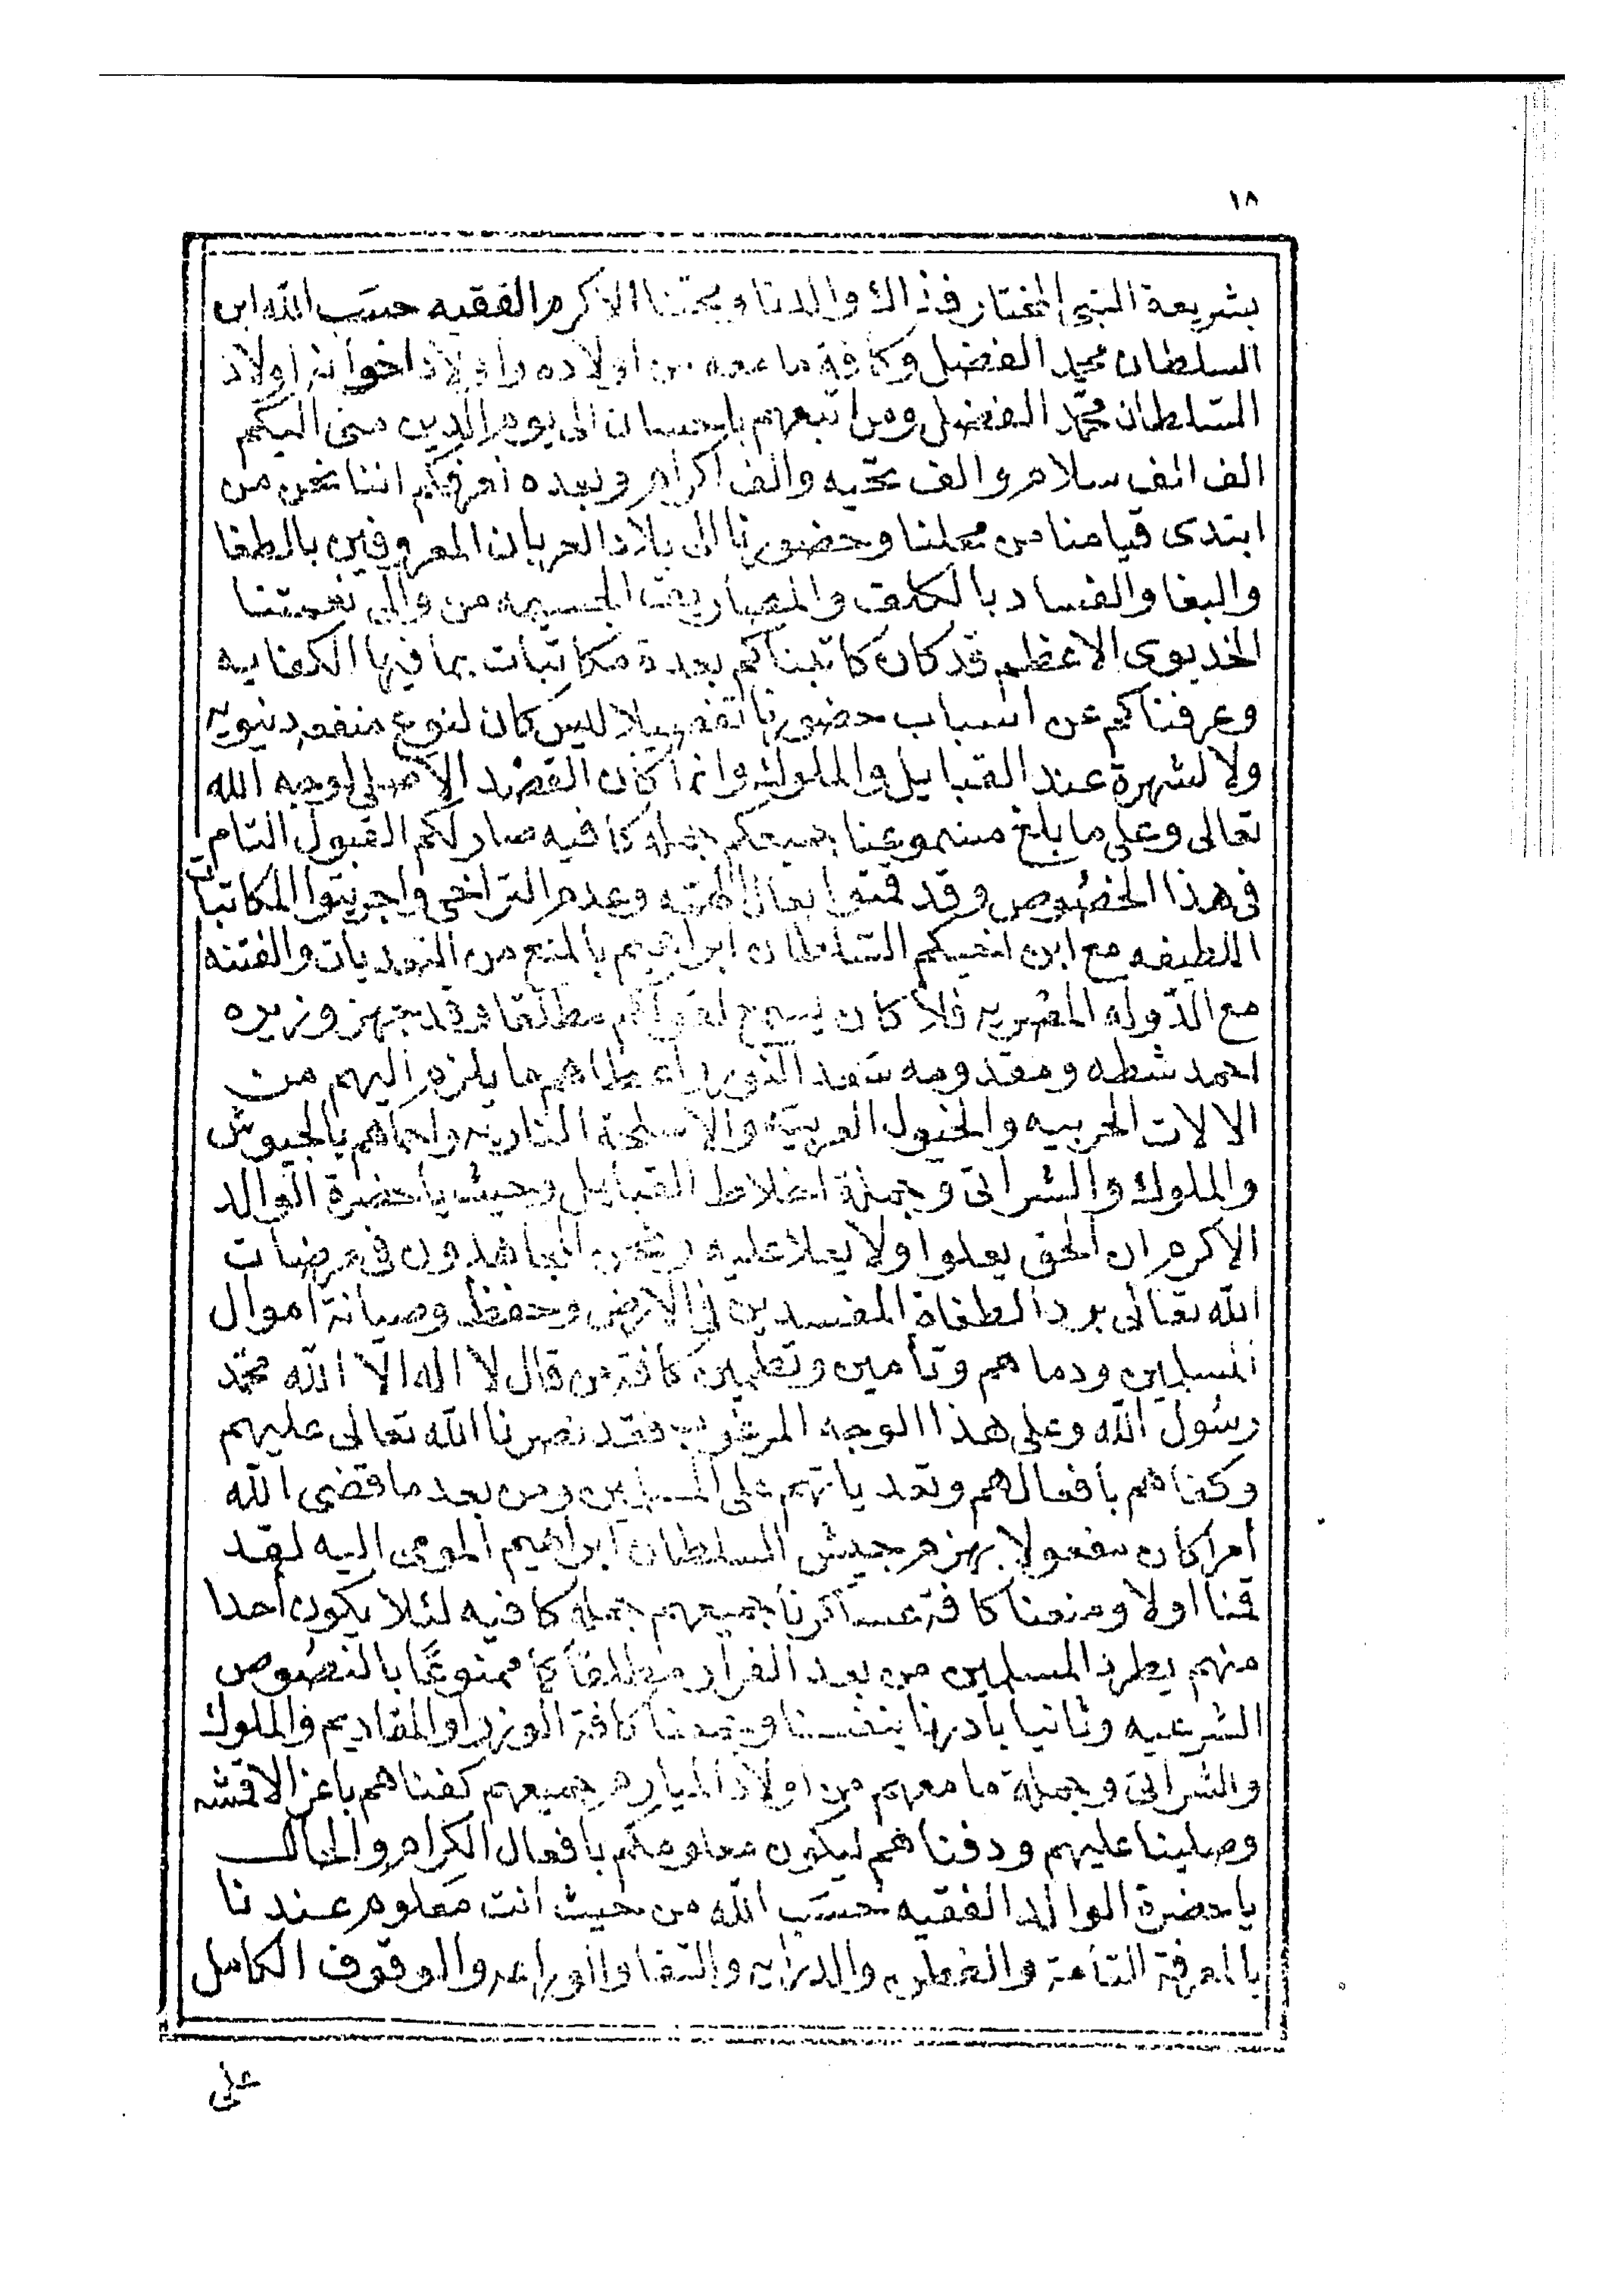 ١٨
بشريعة النبي المختار فذاك والدنا ومحبنا الاكرم الفقيه حسب الله ابن
السلطان محمد الفضل وكافة ما معه من اولاده واولاد اخوانه اولاد
السلطان محمد الفضل ومن اتبعهم باحسان الى يوم الدين منى اليكم
الف الف سلام والف تحيه والف اكرام وبعده نعرفكم اننا نحن من
ابتدى قيامنا من محلنا وحضورنا الى بلاد العربان المعروفين بالطغا
والبغا والفساد بالكلف والمصاريف الجسيمه من والى نعمتنا
الخديوى الاعظم قد كان كاتبناكم بعدة مكاتبات بما فيها الكفايه
وعرفناكم عن اسباب حضورنا تفصيلا ليس كان لنوع منفعه دنيويه
ولا لشهرة عند القبايل والملوك وانما كان القصد الاصلى لوجه الله
تعالى وعلى ما بلغ مسموعنا جميعكم جمله كافيه صار لكم القبول التام
فى هذا الخصوص وقد قمتوا بعال الهمه وعدم التراخى واجريتوا المكاتبات
اللطيفه مع ابن اخيكم السلطان ابراهيم بالمنع من التعديات والفتنه
مع الدوله المصريه فلا كان يسمع لقولكم مطلقا وقد جهز وزيره
احمد شطه ومقدومه سعد النور واعطاهم ما يلزم اليهم من
الالات الحربيه والخيول العربيه والاسلحة الناريه واجاهم بالجيوش
والملوك والشراتى وجملة اخلاط القبايل وحيث يا حضرة الوالد
الاكرم ان الحق يعلوا ولا يعلا عليه ونحن المجاهدون فى مرضات
الله تعالى برد الطغاة المفسدين فى الارض وحفظ وصيانة اموال
المسلمين ودماهم وتأمين وتطمين كافة من قال لا اله الا الله محمد
رسول الله وعلى هذا الوجه المرغوب فقد نصرنا الله تعالى عليهم
وكفاهم بأفعالهم وتعدياتهم على المسلمين ومن بعد ما قضى الله
امرا كان مفعولا بهزم جيش السلطان ابراهيم المومى اليه لقد
قمنا اولا ومنعنا كافة عساكرنا جميعهم جمله كافيه لئلا يكون أحدا
منهم يطرد المسلمين من بعد الفرار مطلقا كما ممنوعًا بالنصوص
الشرعيه وثانيا بادرنا بنفسنا وجمعنا كافة الوزرا والمقاديم والملوك
والشراتى وجملة ما معهم من اولاد الميارم جميعهم كفناهم باعز الاقمشه
وصلينا عليهم ودفناهم ليكون معلومكم بافعال الكرام والحال
يا حضرة الوالد الفقيه حسب الله من حيث انت معلوم عندنا
بالمعرفة التامة والفطره والدرايه والتقا والوراعه والوقوف الكامل
على